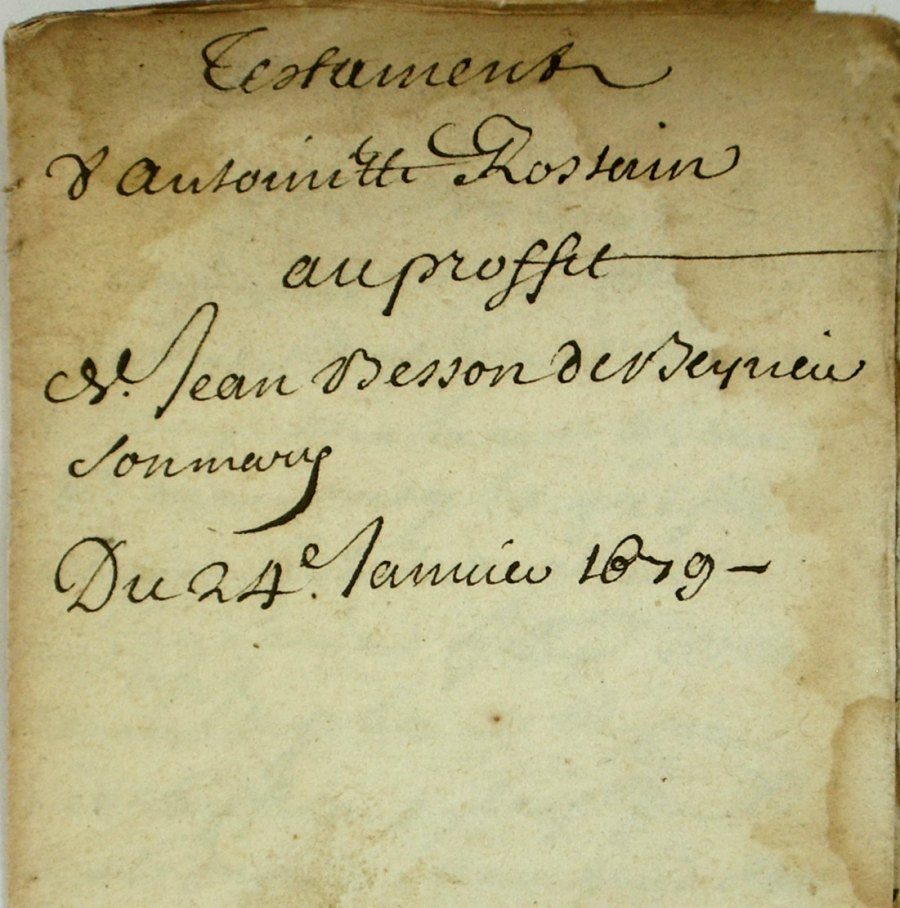 Testament
d'Antoinette Rostain
au proffit
de Sr. Jean Besson de Beyrieu
son mary
Du 24e. Janvier 1679